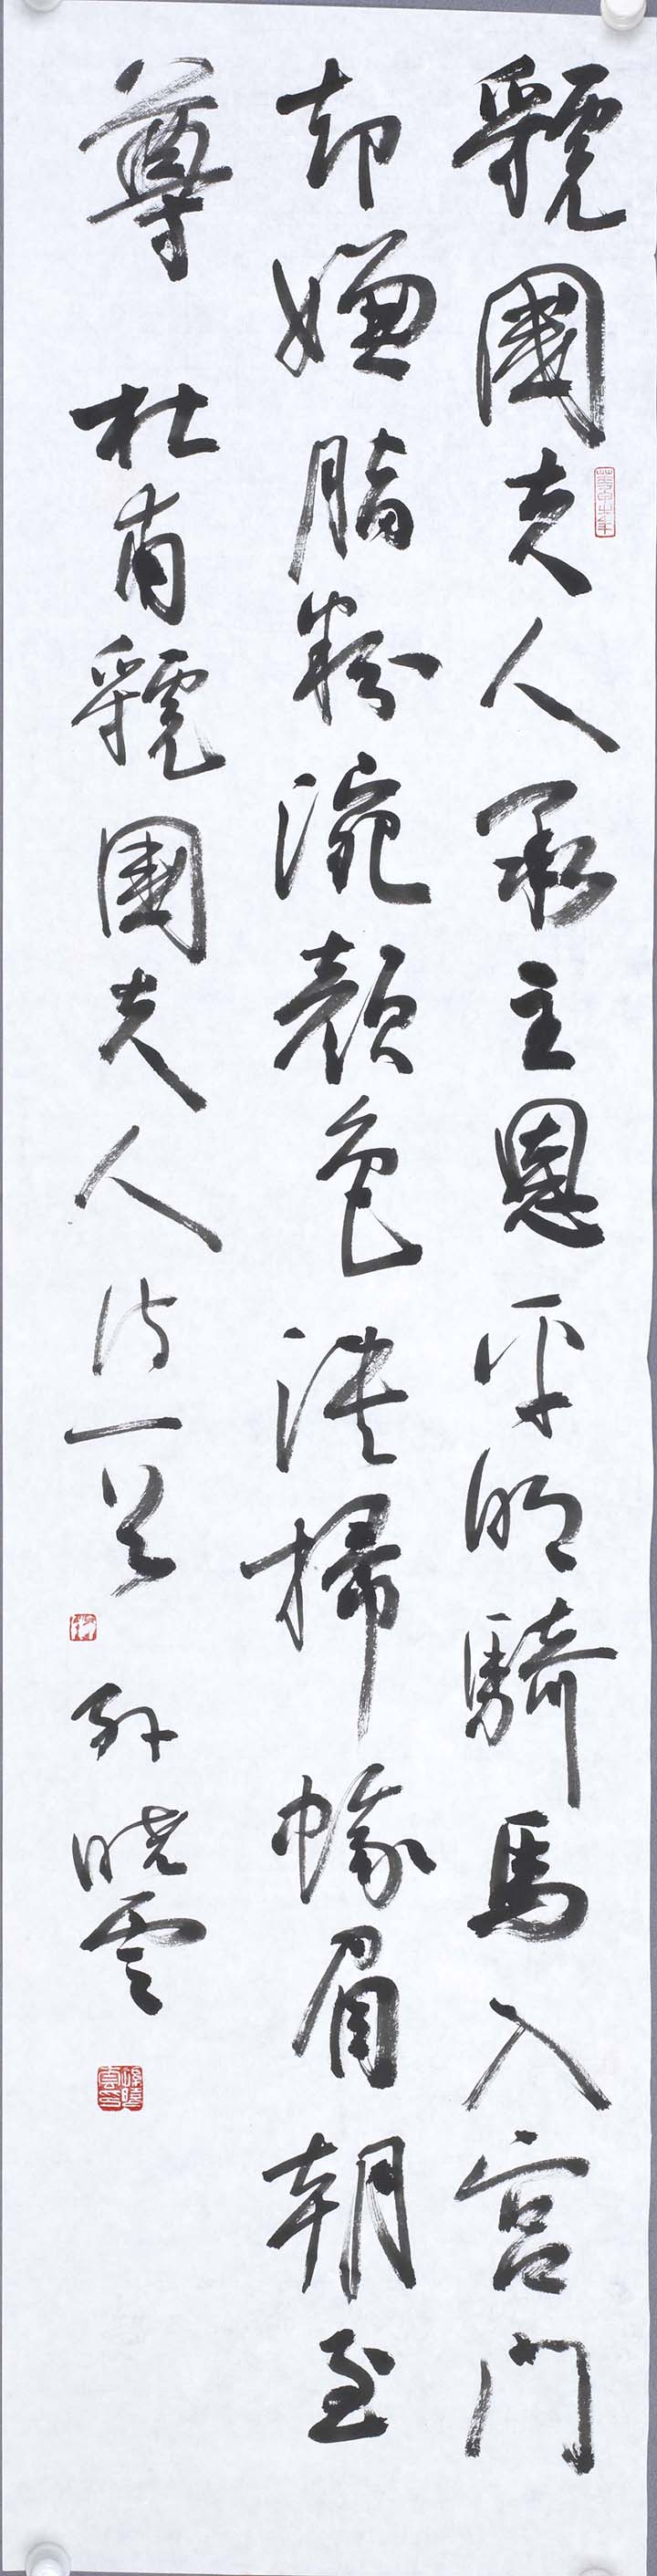 虢國夫人承主恩平明騎馬入宮門
却嫌脂粉涴顏色淡掃蛾眉朝至
尊 杜甫虢國夫人詩一首 孫曉雲
孫曉雲印